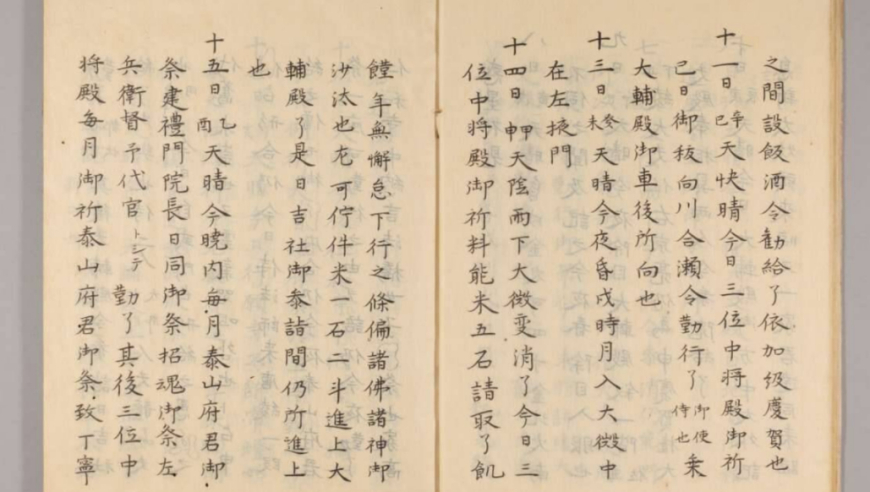 之間設飯酒令勧給了依加級慶賀也
十一日辛巳天快晴今日三位中将殿御祈
已日御祓向川合瀬令勤行了御使侍也乗
大輔殿御車後所向也
十三日癸未天晴今夜昏戌時月入大微中
在左掖門
十四日甲申天陰雨下大微変消了今日三
位中将殿御祈料能米五石請取了飢
饉年無懈怠下行之條偏諸佛諸神御
沙汰也尤可佇件米一石二斗進上大
輔殿了是日吉社御参詣間仍所進上
也
十五日乙酉天晴今暁内毎月泰山府君御
祭建禮門院長日同御祭招魂御祭左
兵衛督予代官トシテ勤了其後三位中
将殿毎月御祈泰山府君御祭致丁寧